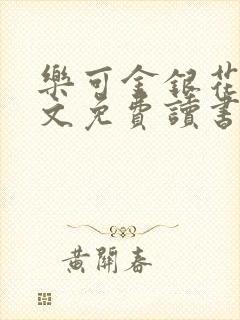 樂可金銀花
文免費讀書
黃開春